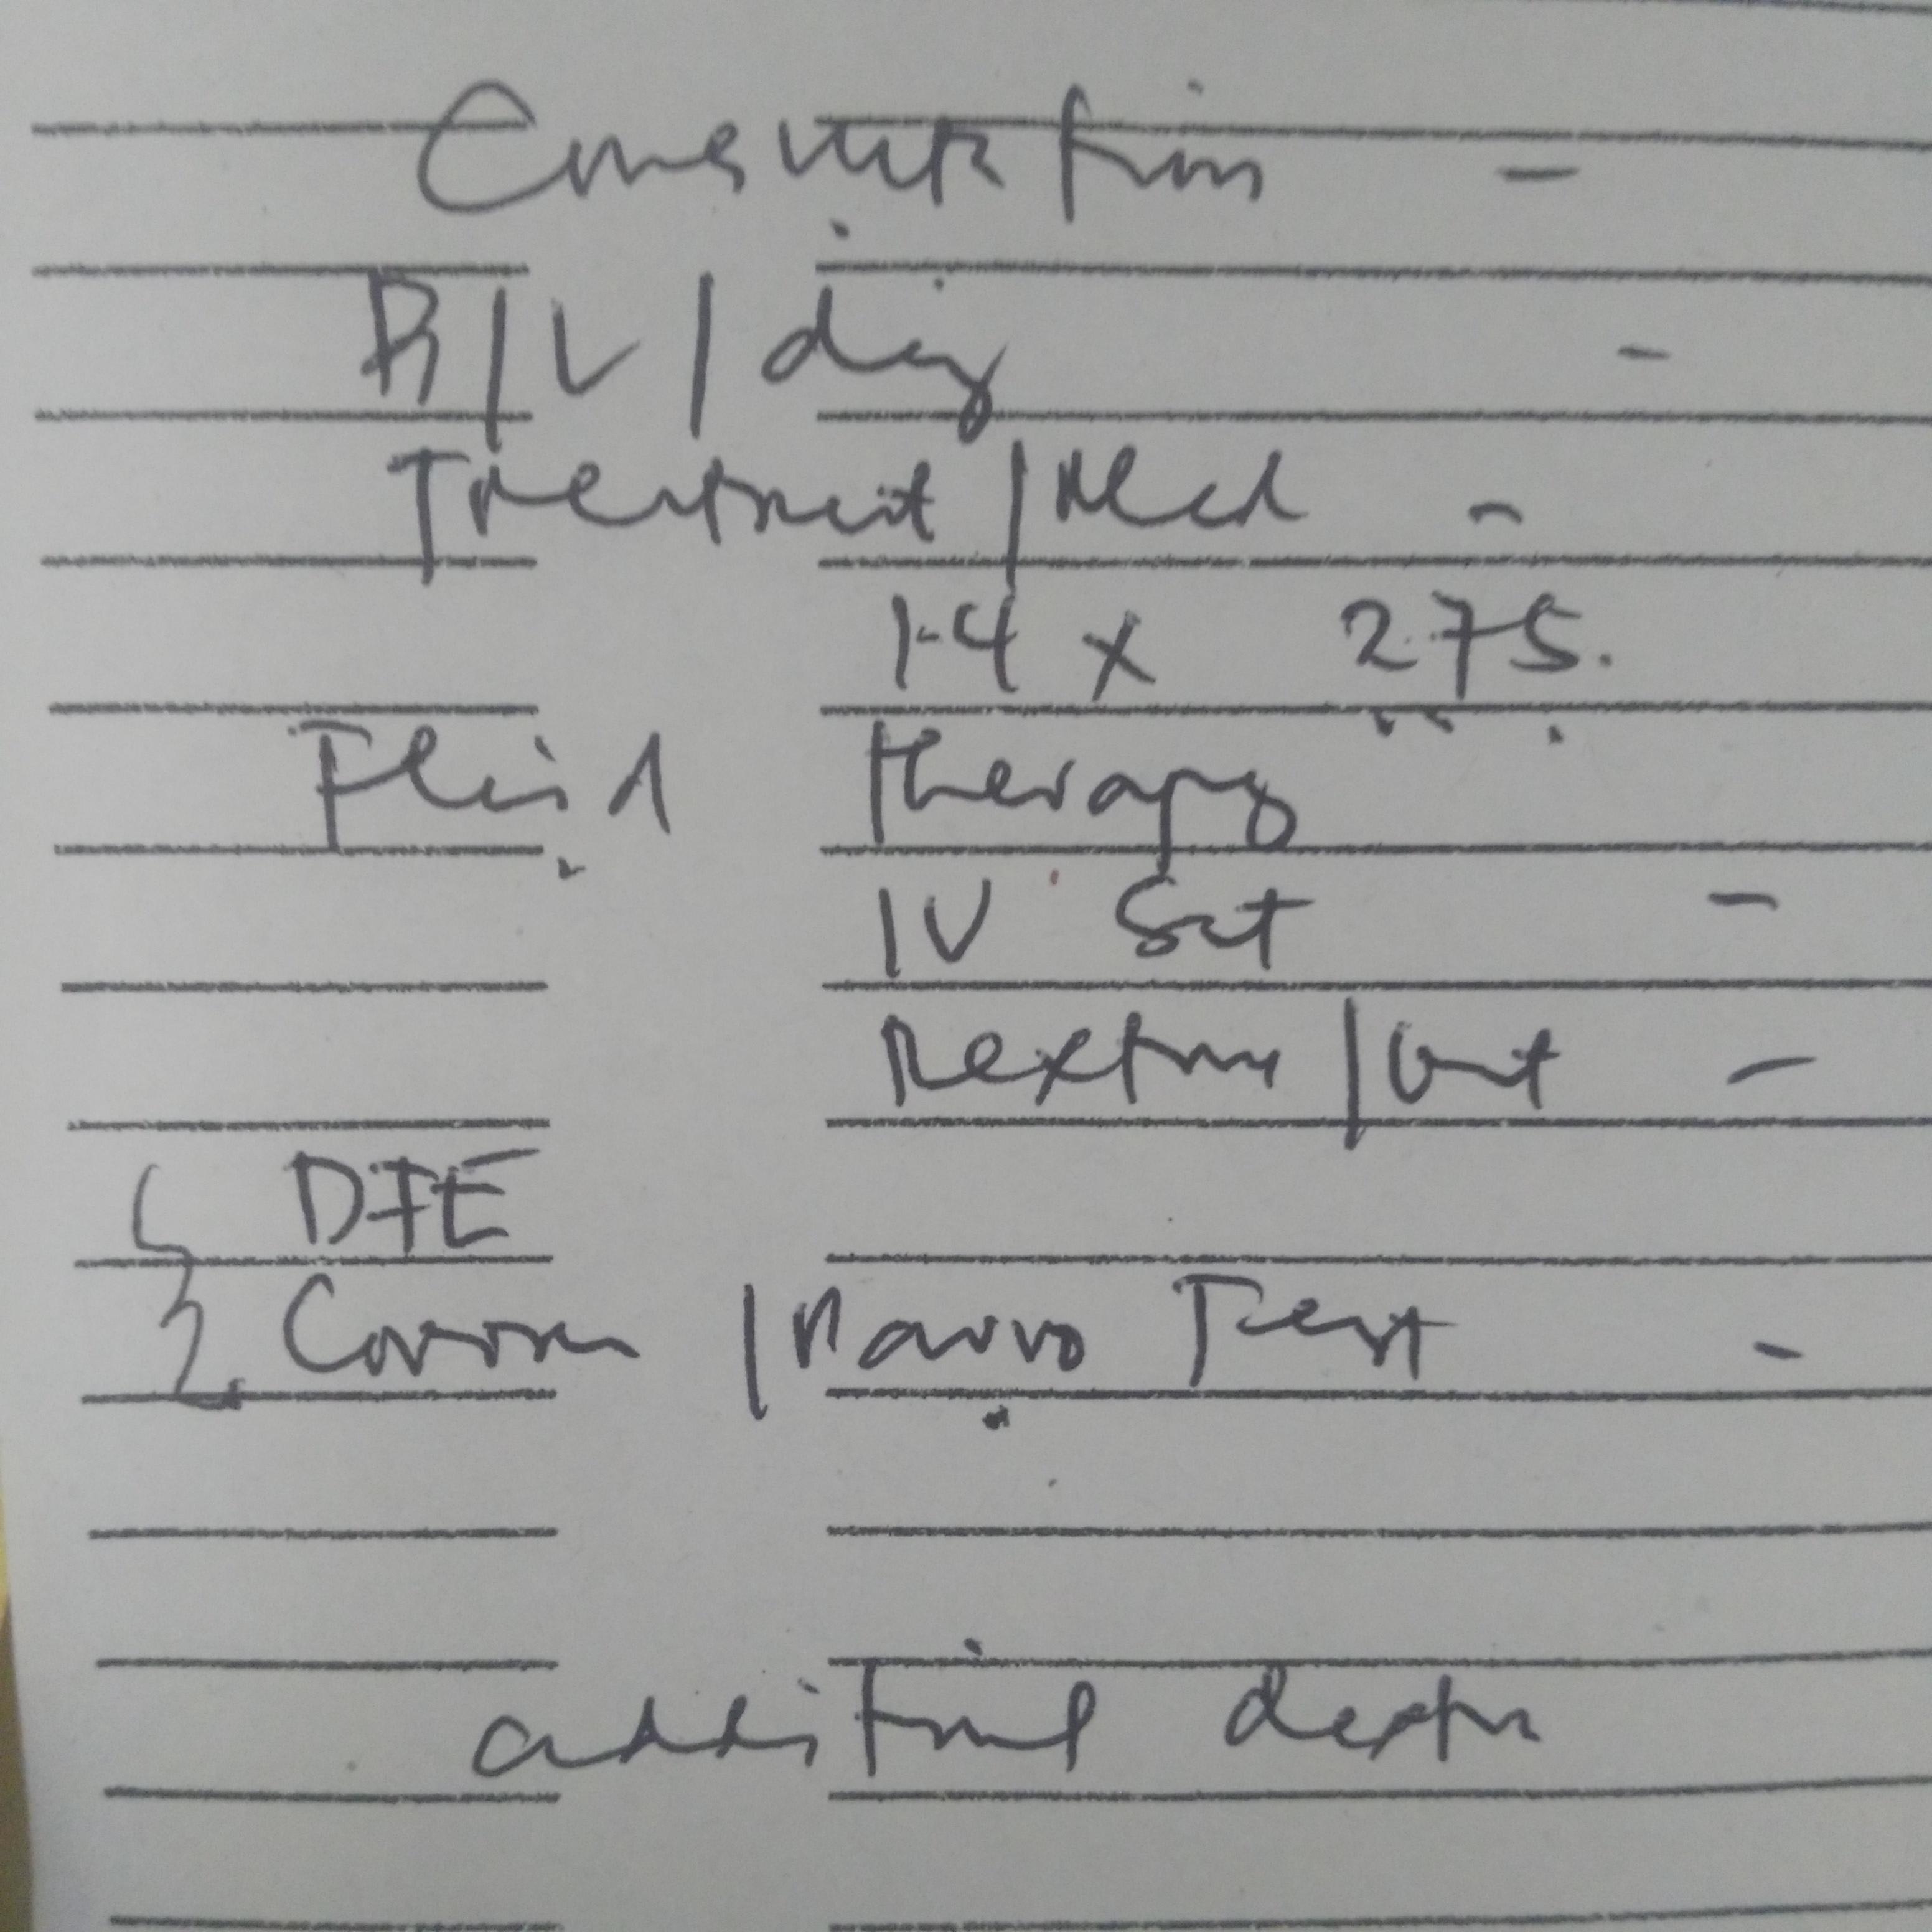 Consultation -
R/V/diag -
Treatment/Med -
1-4 x 275.
Fluid therapy
IV Set -
Dextrose/Unit -
DFE
Corona/Parvo Test -
additional dextr